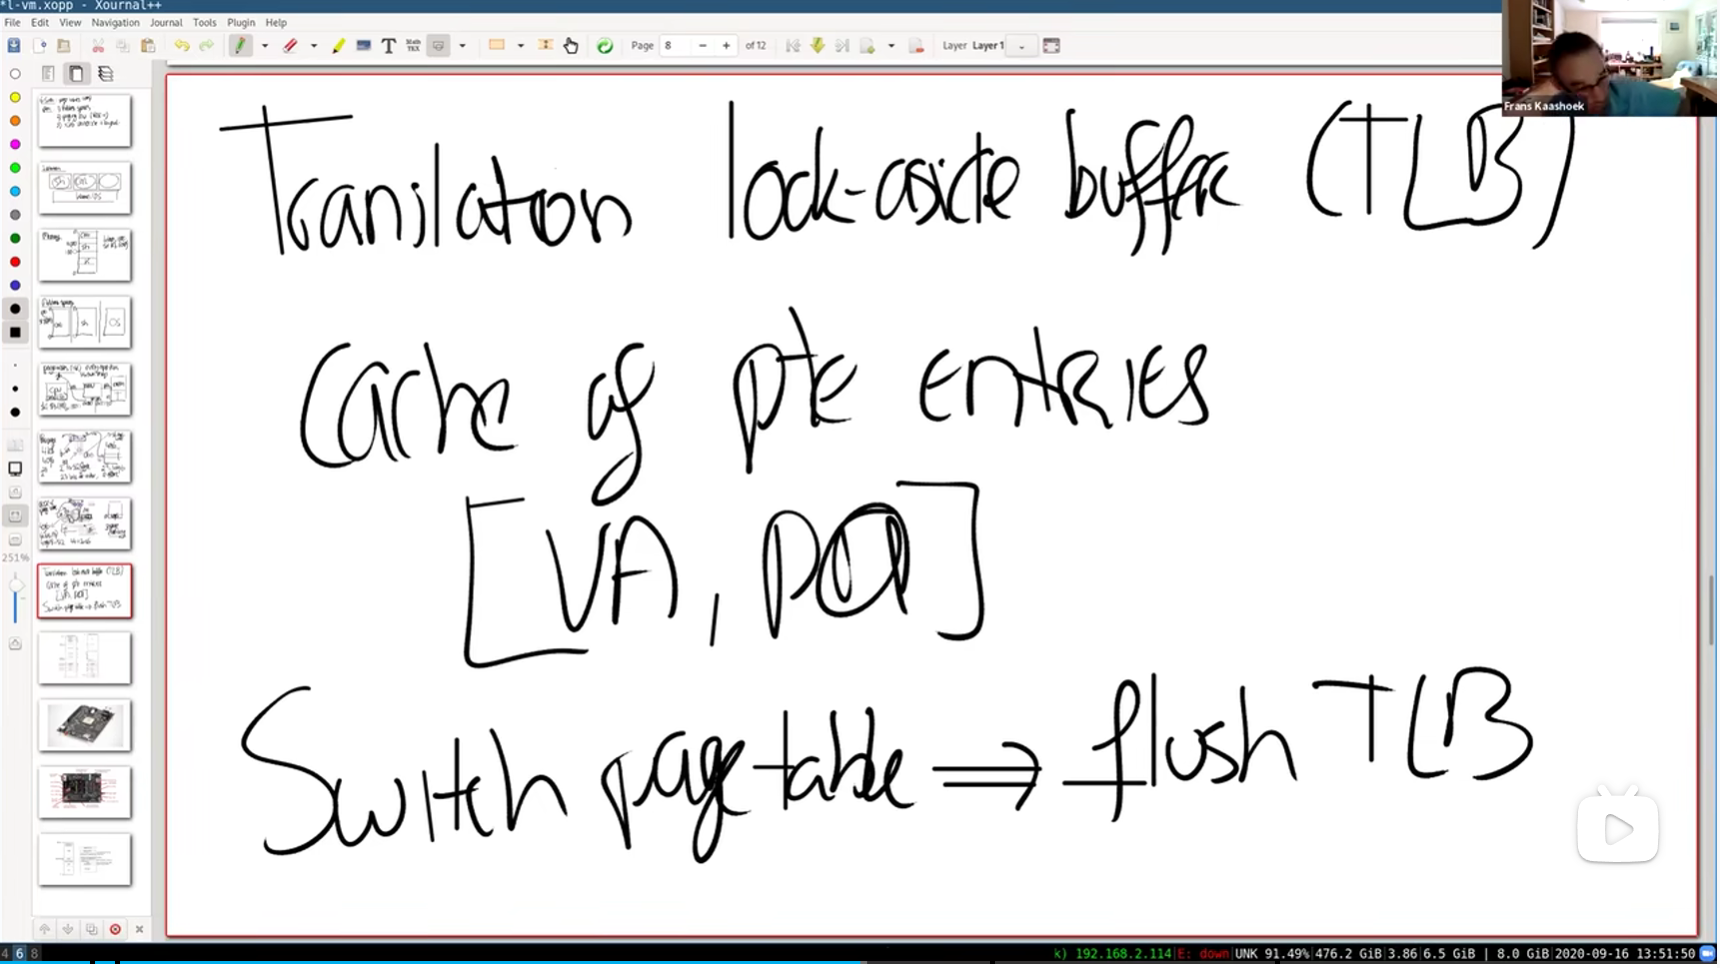 *l-vm.xopp - Xournal++
File Edit View Navigation Journal Tools Plugin Help
Page 8 of 12 Layer Layer 1
Frans Kaashoek
Translation look-aside buffer (TLB)
Cache of pte entries
[VA, ]
Switch page table ⇒ flush TLB
251%
4 6 8
192.168.2.114 E: down UNK 91.49% 476.2 GiB 3.86 6.5 GiB | 8.0 GiB 2020-09-16 13:51:50